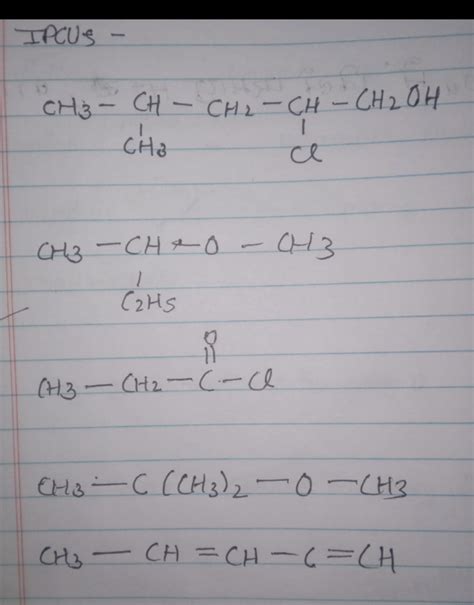 IPCUS -
CH3 - CH - CH2 - CH - CH2OH
CH3 Cl
CH3 - CH - O - CH3
C2H5
O
CH3 - CH2 - C - Cl
CH3 - C (CH3)2 - O - CH3
CH3 - CH = CH - C = CH